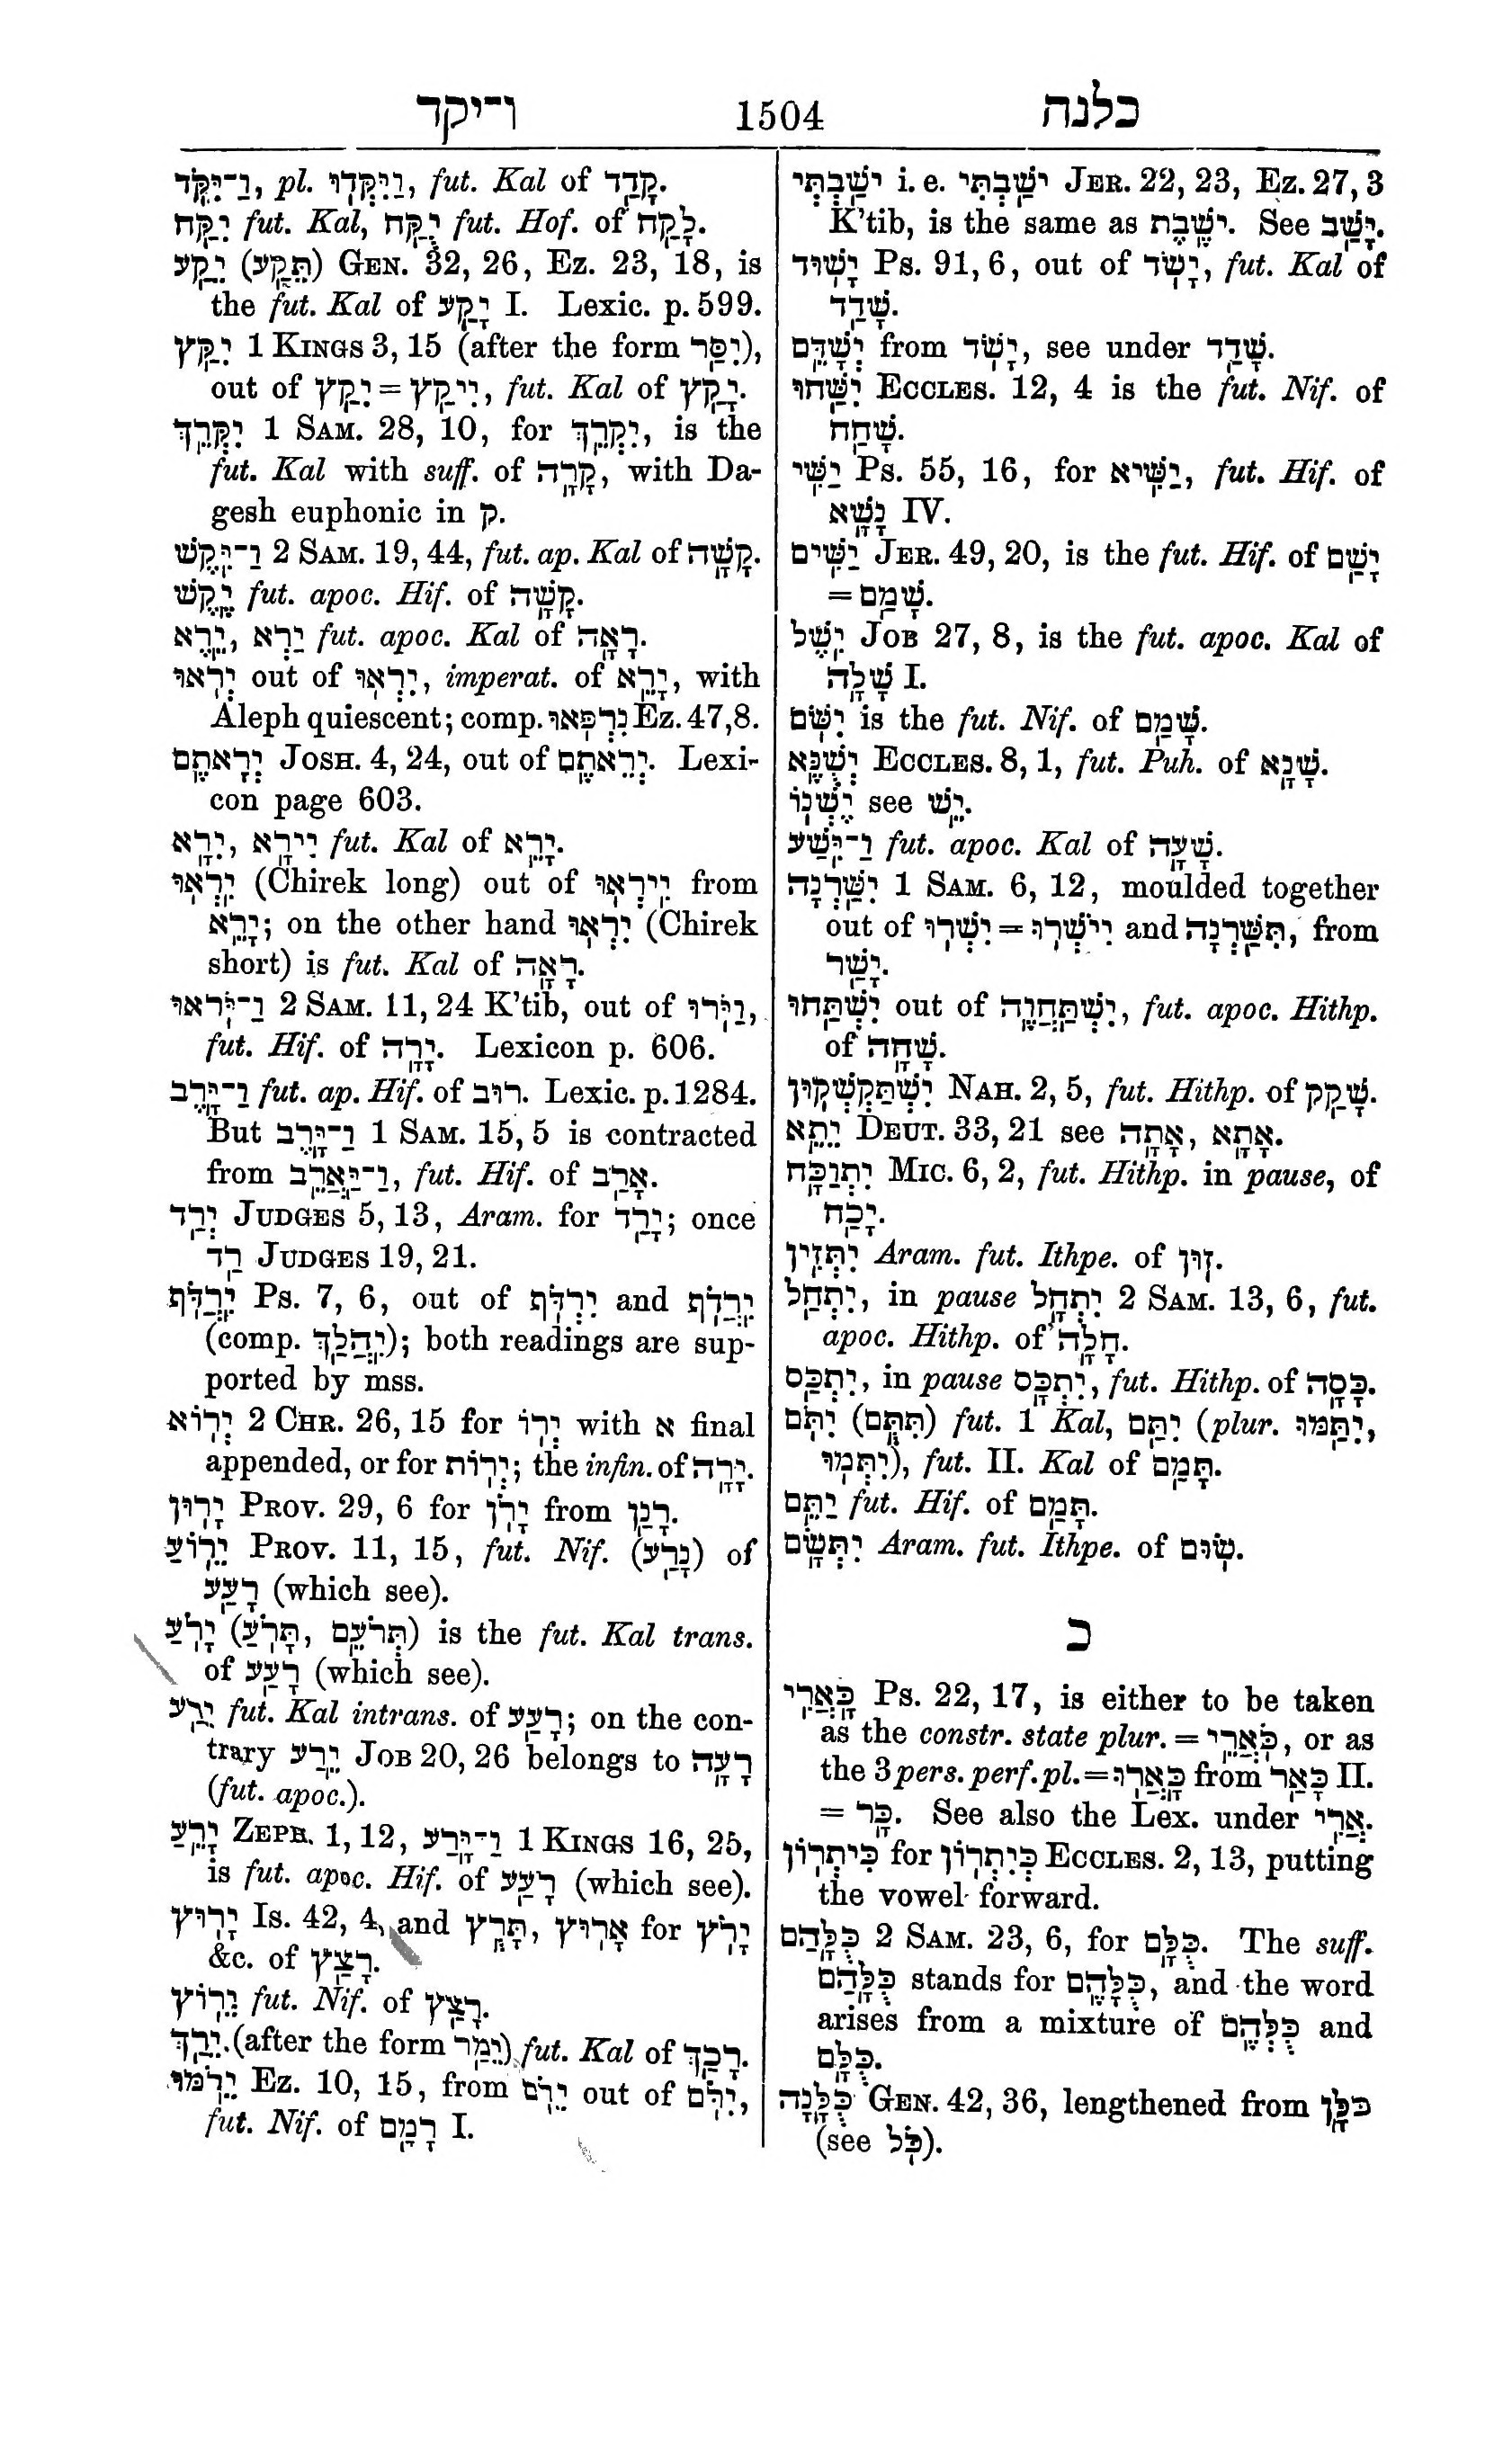 ו־יקד 1504 כלנה
וַ־יִּקֹּד, pl. וַיִּקְּדוּ, fut. Kal of קָדַד.
יִקַּח fut. Kal, יֻקַּח fut. Hof. of לָקַח.
יֵקַע (תֵּקַע) GEN. 32, 26, Ez. 23, 18, is
the fut. Kal of יָקַע I. Lexic. p. 599.
יִקַּץ 1 KINGS 3, 15 (after the form יִסַּר),
out of יִקַץ = יִיקַץ, fut. Kal of יָקַץ.
יִקְּרֵךְ 1 SAM. 28, 10, for יִקְרֵךְ, is the
fut. Kal with suff. of קָרָה, with Da-
gesh euphonic in ק.
וַ־יִּקֶשׁ 2 SAM. 19, 44, fut. ap. Kal of קָשָׁה.
יֶקֶשׁ fut. apoc. Hif. of קָשָׁה.
יֵרֶא, יַרְא fut. apoc. Kal of רָאָה.
יְראוּ out of יִרְאוּ, imperat. of יָרֵא, with
Aleph quiescent; comp. נִרְפְּאוּ Ez. 47,8.
יְרָאתֶם JOSH. 4, 24, out of יְרֵאתֶם. Lexi-
con page 603.
יִרָא, יִירָא fut. Kal of יָרֵא.
יִרְאוּ (Chirek long) out of יִירְאוּ from
יָרֵא; on the other hand יִרְאוּ (Chirek
short) is fut. Kal of רָאָה.
וַ־יֹּראוּ 2 SAM. 11, 24 K'tib, out of וַיֹּרוּ,
fut. Hif. of יָרָה. Lexicon p. 606.
וַ־יָּרֶב fut. ap. Hif. of רוּב. Lexic. p. 1284.
But וַ־יָּרֶב 1 SAM. 15, 5 is contracted
from וַ־יַּאֲרֵב, fut. Hif. of אָרַב.
יְרַד JUDGES 5, 13, Aram. for יָרַד; once
רַד JUDGES 19, 21.
יִרֲדֹּף Ps. 7, 6, out of יִרְדֹּף and יִרֲדֹף
(comp. יִהֲלַךְ); both readings are sup-
ported by mss.
יְרוֹא 2 CHR. 26, 15 for יְרוֹ with א final
appended, or for יְרוֹת; the infin. of יָרָה.
יָרוּן PROV. 29, 6 for יָרֹן from רָנַן.
יֵרוֹעַ PROV. 11, 15, fut. Nif. (נָרַע) of
רָעַע (which see).
יָרֹעַ (תָּרֹעַ, תְּרֹעֵם) is the fut. Kal trans.
of רָעַע (which see).
יֵרַע fut. Kal intrans. of רָעַע; on the con-
trary יֵרַע JOB 20, 26 belongs to רָעָה
(fut. apoc.).
יָרֵעַ ZEPH. 1, 12, וַ־יָּרַע 1 KINGS 16, 25,
is fut. apoc. Hif. of רָעַע (which see).
יָרוּץ Is. 42, 4, and תָּרֻץ, אָרוּץ for יָרֹץ
&c. of רָצַץ.
יֵרוֹץ fut. Nif. of רָצַץ.
יֵרַךְ (after the form יֵמַר) fut. Kal of רָכַךְ.
יֵרֹמּוּ Ez. 10, 15, from יֵרֹם out of יִרֹּם,
fut. Nif. of רָמַם I.
יֹשַׁבְתְּי i. e. יֹשַׁבְתִּי JER. 22, 23, Ez. 27, 3
K'tib, is the same as יֹשֶׁבֶת. See יָשַׁב.
יָשׁוּד Ps. 91, 6, out of יָשֹׁד, fut. Kal of
שָׁדַד.
יְשָׁדֵּם from יָשֹׁד, see under שָׁדַד.
יִשַּׁחוּ ECCLES. 12, 4 is the fut. Nif. of
שָׁחַח.
יַשִּׁי Ps. 55, 16, for יַשִּׁיא, fut. Hif. of
נָשָׁא IV.
יַשִּׁים JER. 49, 20, is the fut. Hif. of יָשַׁם
= שָׁמַם.
יֵשֶׁל JOB 27, 8, is the fut. apoc. Kal of
שָׁלָה I.
יִשֹּׁם is the fut. Nif. of שָׁמַם.
יְשֻׁנֶּא ECCLES. 8, 1, fut. Puh. of שָׁנָא.
יֶשְׁנוֹ see יֵשׁ.
וַ־יִּשַׁע fut. apoc. Kal of שָׁעָה.
יִשַּׁרְנָה 1 SAM. 6, 12, moulded together
out of יִשְׁרוּ = יִישְׁרוּ and תִּשַּׁרְנָה, from
יָשַׁר.
יִשְׁתַּחוּ out of יִשְׁתַּחֲוֶה, fut. apoc. Hithp.
of שָׁחָה.
יִשְׁתַּקְשְׁקוּן NAH. 2, 5, fut. Hithp. of שָׁקַק.
יֵתֵא DEUT. 33, 21 see אָתָה, אָתָא.
יִתְוַכָּח MIC. 6, 2, fut. Hithp. in pause, of
יָכַח.
יִתְּזִין Aram. fut. Ithpe. of זוּן.
יִתְחַל, in pause יִתְחָל 2 SAM. 13, 6, fut.
apoc. Hithp. of חָלָה.
יִתְכַּס, in pause יִתְכָּס, fut. Hithp. of כָּסָה.
יִתֹּם (תִּתֹּם) fut. 1 Kal, יִתַּם (plur. יִתַּמּוּ,
יִתְּמוּ), fut. II. Kal of תָּמַם.
יַתֵּם fut. Hif. of תָּמַם.
יִתְּשָׂם Aram. fut. Ithpe. of שׂוּם.
כ
כָּאֲרִי Ps. 22, 17, is either to be taken
as the constr. state plur. = כֹּאֲרֵי, or as
the 3 pers. perf. pl. = כָּאֲרוּ from כָּאַר II.
= כָּר. See also the Lex. under אֲרִי.
כִּיתְרוֹן for כְּיִתְרוֹן ECCLES. 2, 13, putting
the vowel forward.
כֻּלָּהַם 2 SAM. 23, 6, for כֻּלָּם. The suff.
כֻּלָּהַם stands for כֻּלָּהֶם, and the word
arises from a mixture of כֻּלְּהֶם and
כֻּלָּם.
כֻּלָּנָה GEN. 42, 36, lengthened from כּלָּן
(see כֹּל).